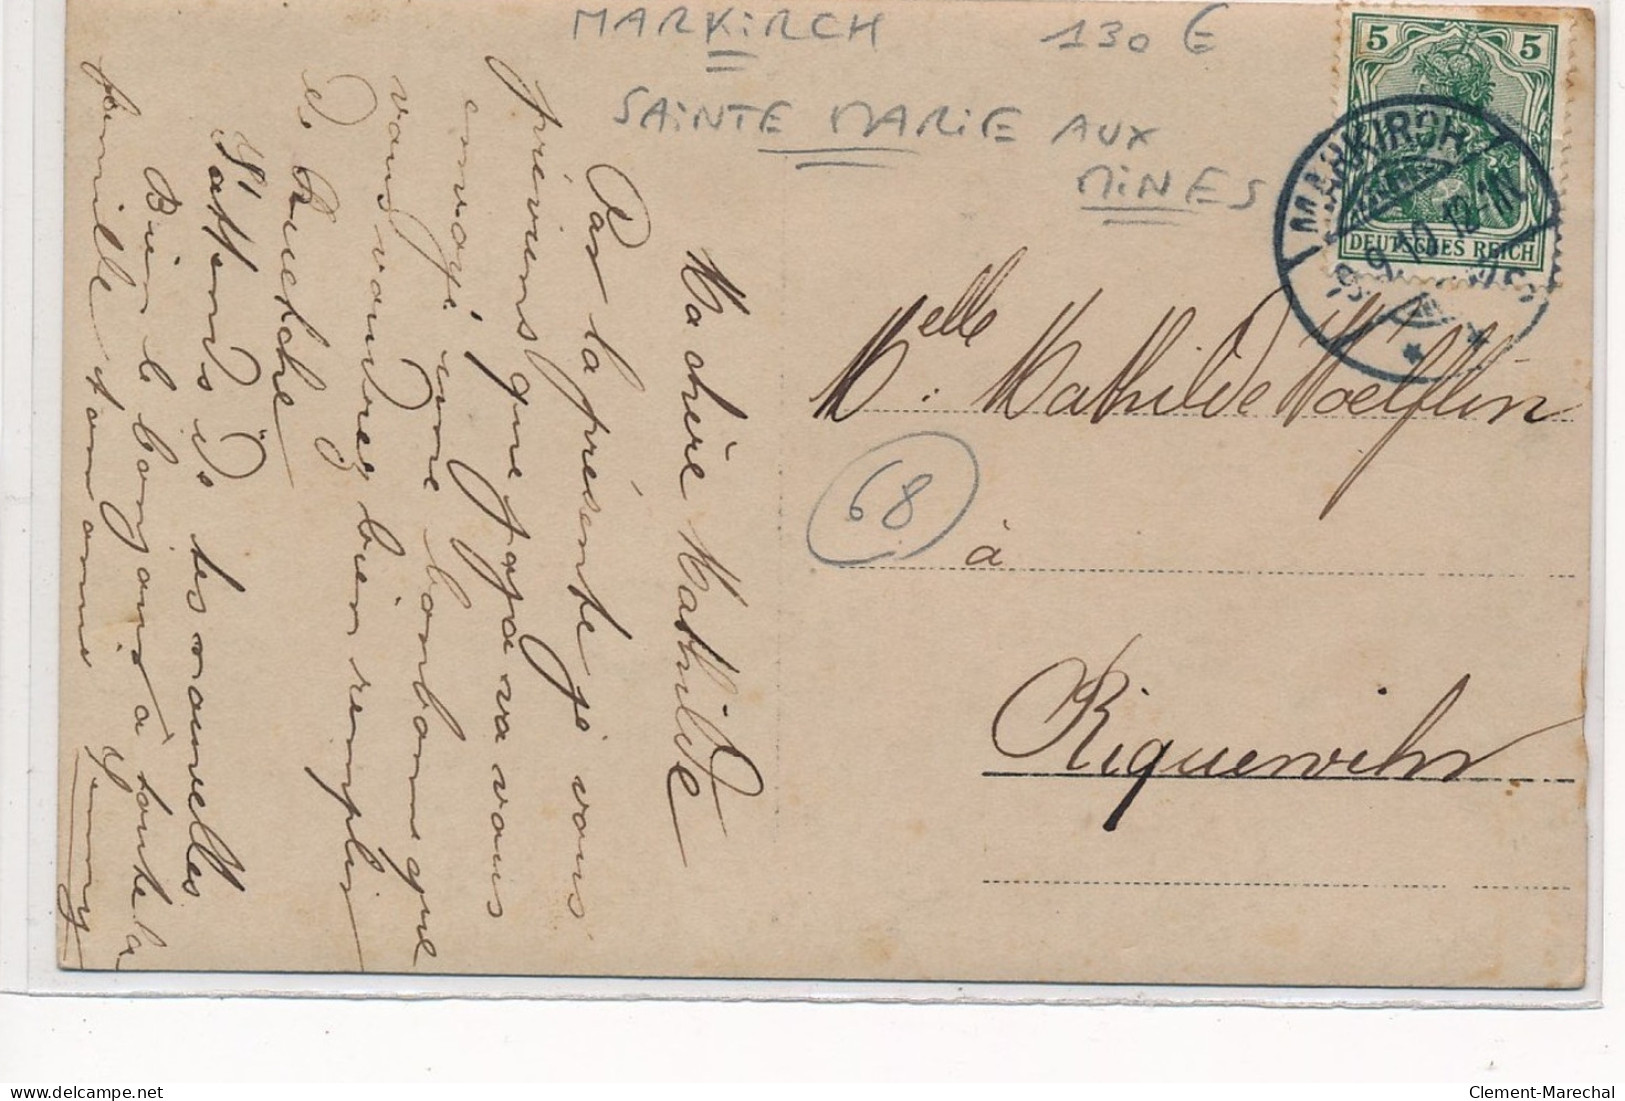 MARKIRCH 130 €
SAINTE MARIE AUX
MINES
5 5
DEUTSCHES REICH
MARKIRCH
9.9.10 12-1N
Melle: Mathilde Woelflin
68
à
Riquewihr
Ma chère Mathilde
Par la présente je vous
préviens que papa va vous
envoyé une bonbonne que
vous voudrez bien remplir
de
J'attends de tes nouvelles
Bien le bonjour à toute la
famille ton amie Jenny
Clement-Marechal